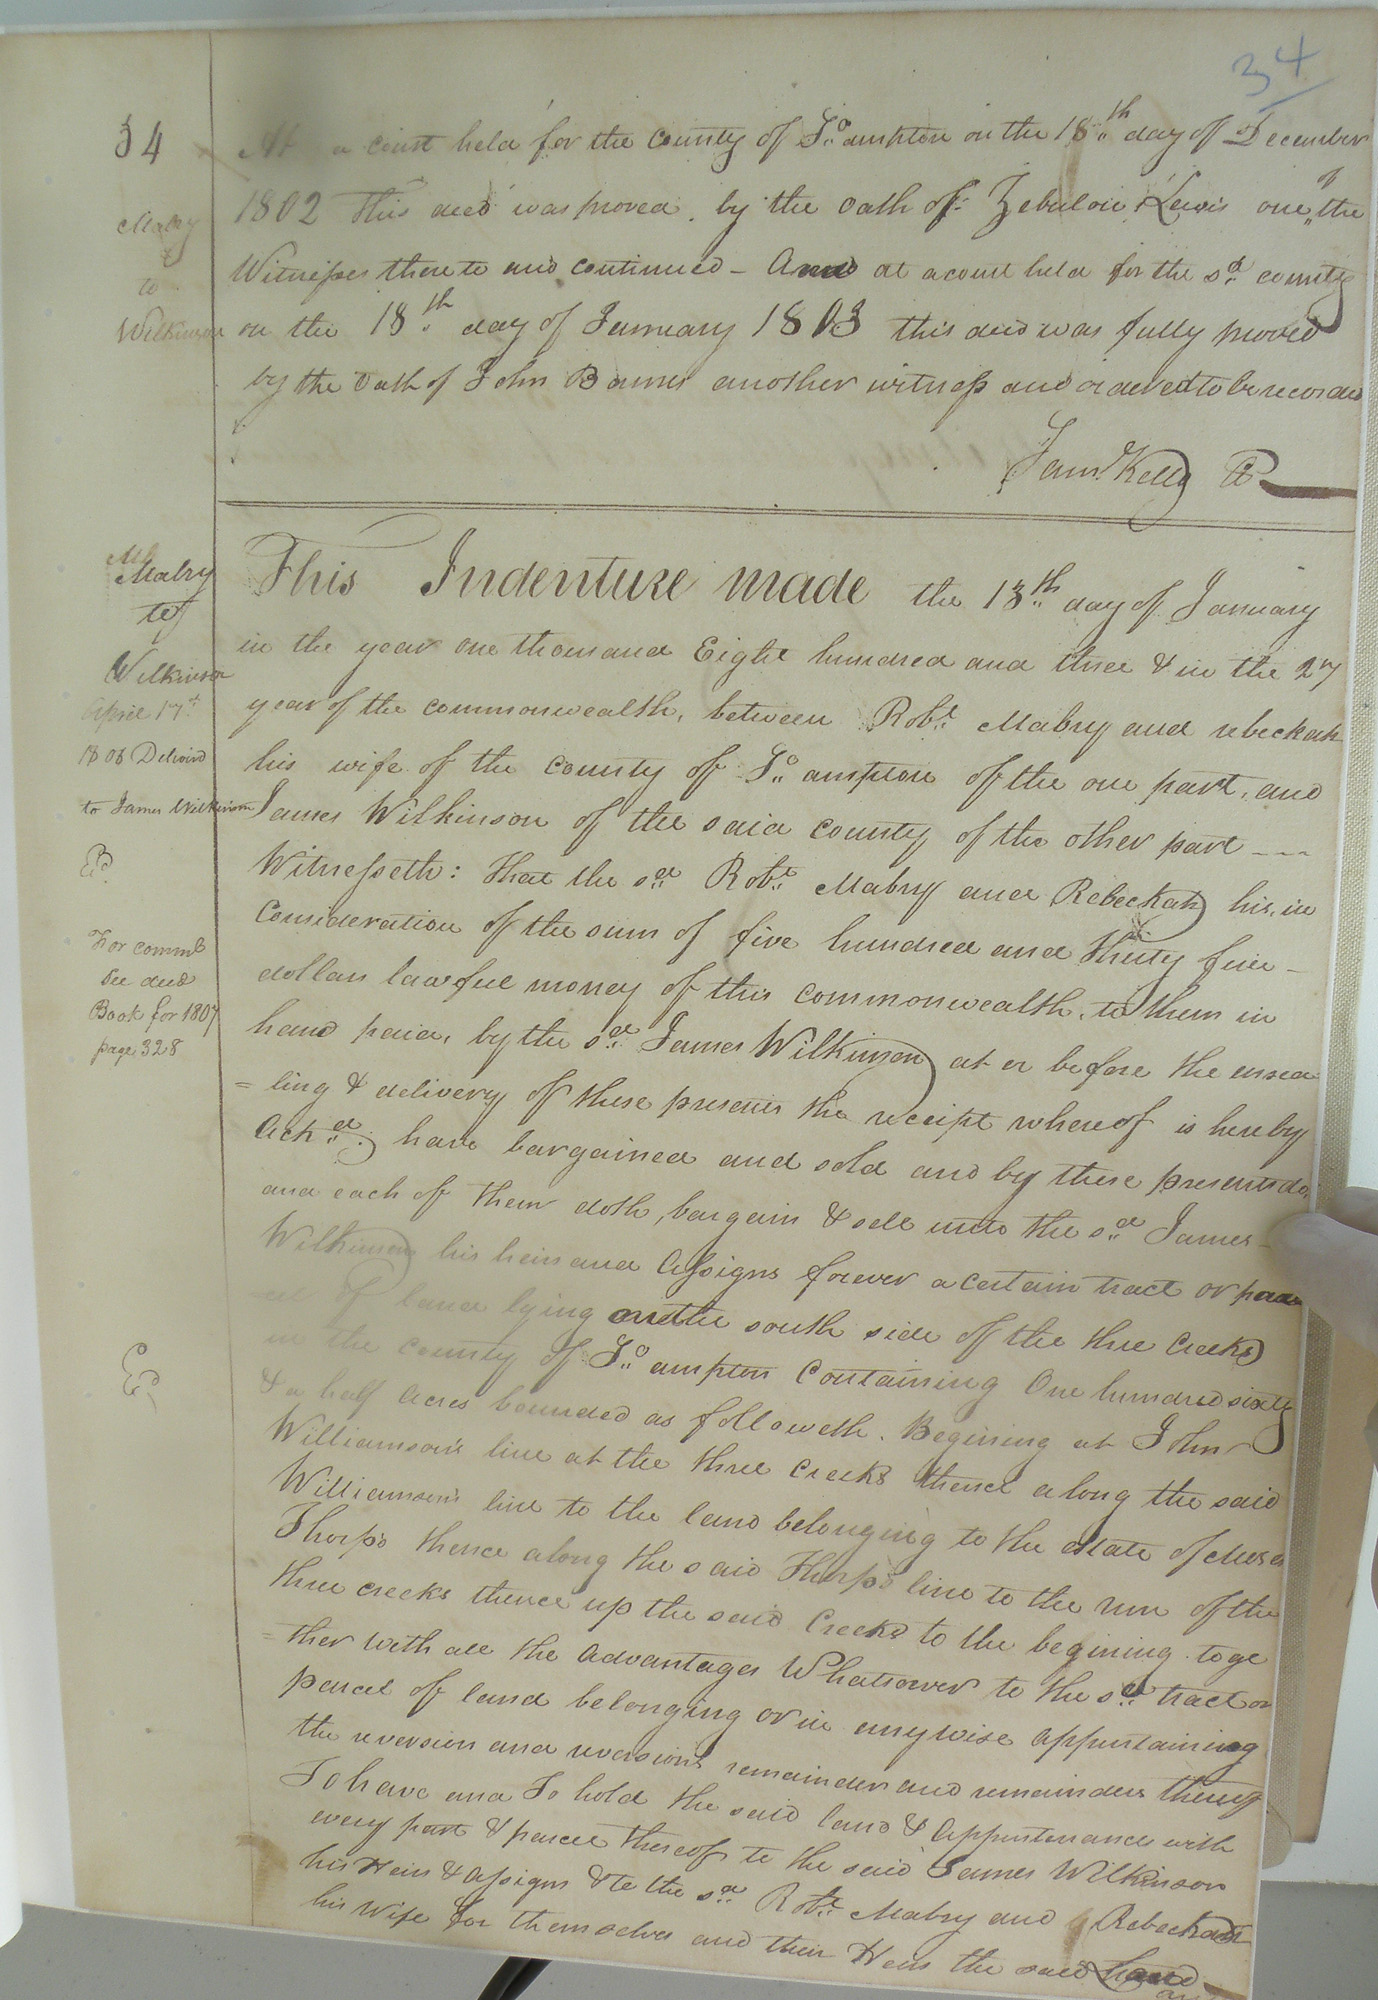 34
34
At a court held for the county of So..ampton on the 18..th day of December
1802 This deed was proved by the Oath of Zebulon Lewis one of the
Witnesses thereto and continued - And at a court held for the sd.. county
on the 18..th day of January 1803 this deed was fully proved
by the Oath of John Barnes another witness and ordered to be recorded
Saml. Kelly C
Mabry
&
to
Wilkinson
This Indenture made the 13..th day of January
in the year one thousand Eight hundred and three & in the 27
year of the commonwealth, between Robt.. Mabry and rebeckah
his wife of the county of So..ampton of the one part, and
James Wilkinson of the said county of the other part ---
Witnesseth: That the sd.. Robt.. Mabry and Rebeckah his, in
Consideration of the sum of five hundred and thirty five -
dollars lawful money of this commonwealth, to them in
hand paid, by the sd.. James Wilkinson at or before the ensea
= ling & delivery of these presents the receipt whereof is hereby
Ackd.. have bargained and sold and by these presents do,
and each of them doth, bargain & sell unto the sd.. James -
Wilkinson his heirs and Assigns forever a certain tract or par
cel of land lying on the south side of the three Creeks
in the county of So..ampton Containing One hundred sixty
& a half Acres bounded as followeth. Begining at John
Williamson's line at the three Creeks thence along the said
Williamson's line to the land belonging to the estate of Moses
Thorp's thence along the said Thorp's line to the run of the
three creeks thence up the said Creeks to the begining toge
= ther with all the advantages Whatsoever to the sd.. tract or
parcel of land belonging or in anywise appertaining
the reversion and reversions remainder and remainders thereof
To have and To hold the said land & Appurtenances with
every part & parcel thereof to the said James Wilkinson
his Heirs & Assigns & to the sd.. Robt.. Mabry and Rebeckah
his Wife for themselves and their Heirs the said land
Mabry
to
Wilkinson
April 17th
1808 Deliverd
to James Wilkinson
Ed
For commn
See deed
Book for 1807
page 328
Ed